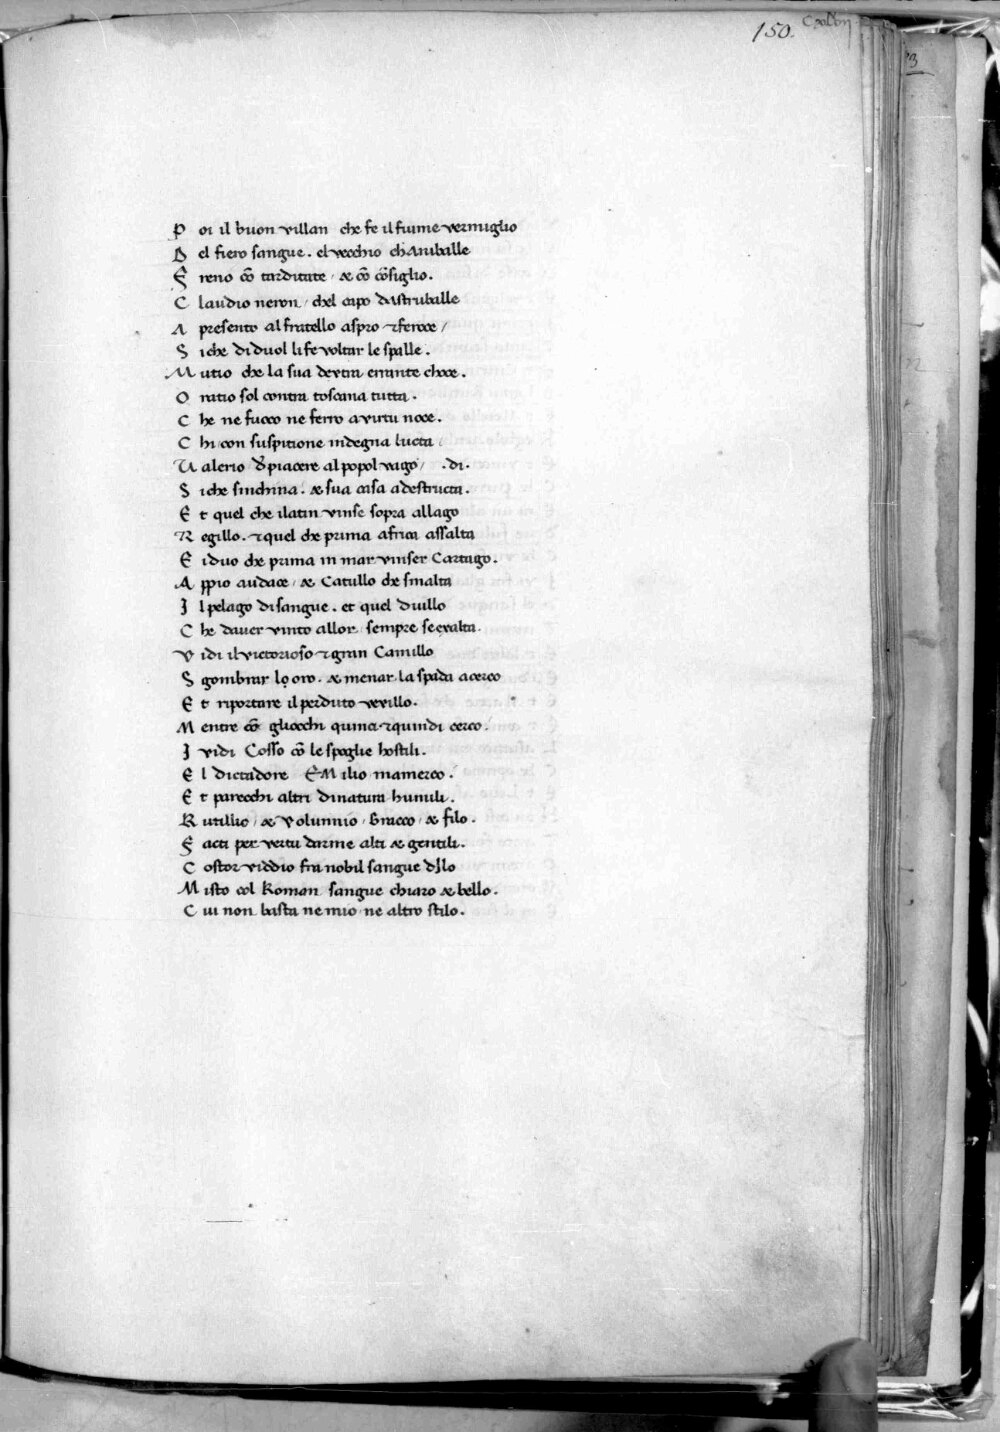 150.
P oi il buon villan che fe il fiume vermiglio
D el fiero sangue. el vecchio chAniballe
F reno cō tarditate / & cō cōsiglio.
C laudio neron / chel capo dAstruballe
A presento al fratello aspro ⁊feroce /
S iche diduol li fe voltar le spalle.
M utio che la sua dextra errante choce.
O ratio sol contra toscana tutta.
C he ne fuoco ne ferro avirtu noce.
C hi con suspitione indegna lucta
V alerio d̄ piacere al popol vago / .di.
S iche sinchina. & sua casa adestructa.
E t quel che ilatin vinse sopra allago
R egillo. ⁊quel che prima africa assalta
E iduo che prima in mar vinser Cartago.
A ppio audace / & Catullo che smalta
I l pelago disangue. et quel duillo
C he daver vinto allor sempre seexalta.
V idi il victorioso ⁊gran Camillo
S gombrar lo oro. & menar la spada acerco
E t riportare il perduto vexillo.
M entre cō gliocchi quinci ⁊quindi cerco.
I vidi Cosso cō le spoglie hostili.
E l dictadore EMilio mamerco.
E t parecchi altri dinatura humili.
R utilio / & Volunnio / Gracco & filo.
F acti per vertu darme alti & gentili.
C ostor viddio fra nobil sangue dIlo
M isto col Roman sangue chiaro & bello.
C ui non basta ne mio ne altro stilo.